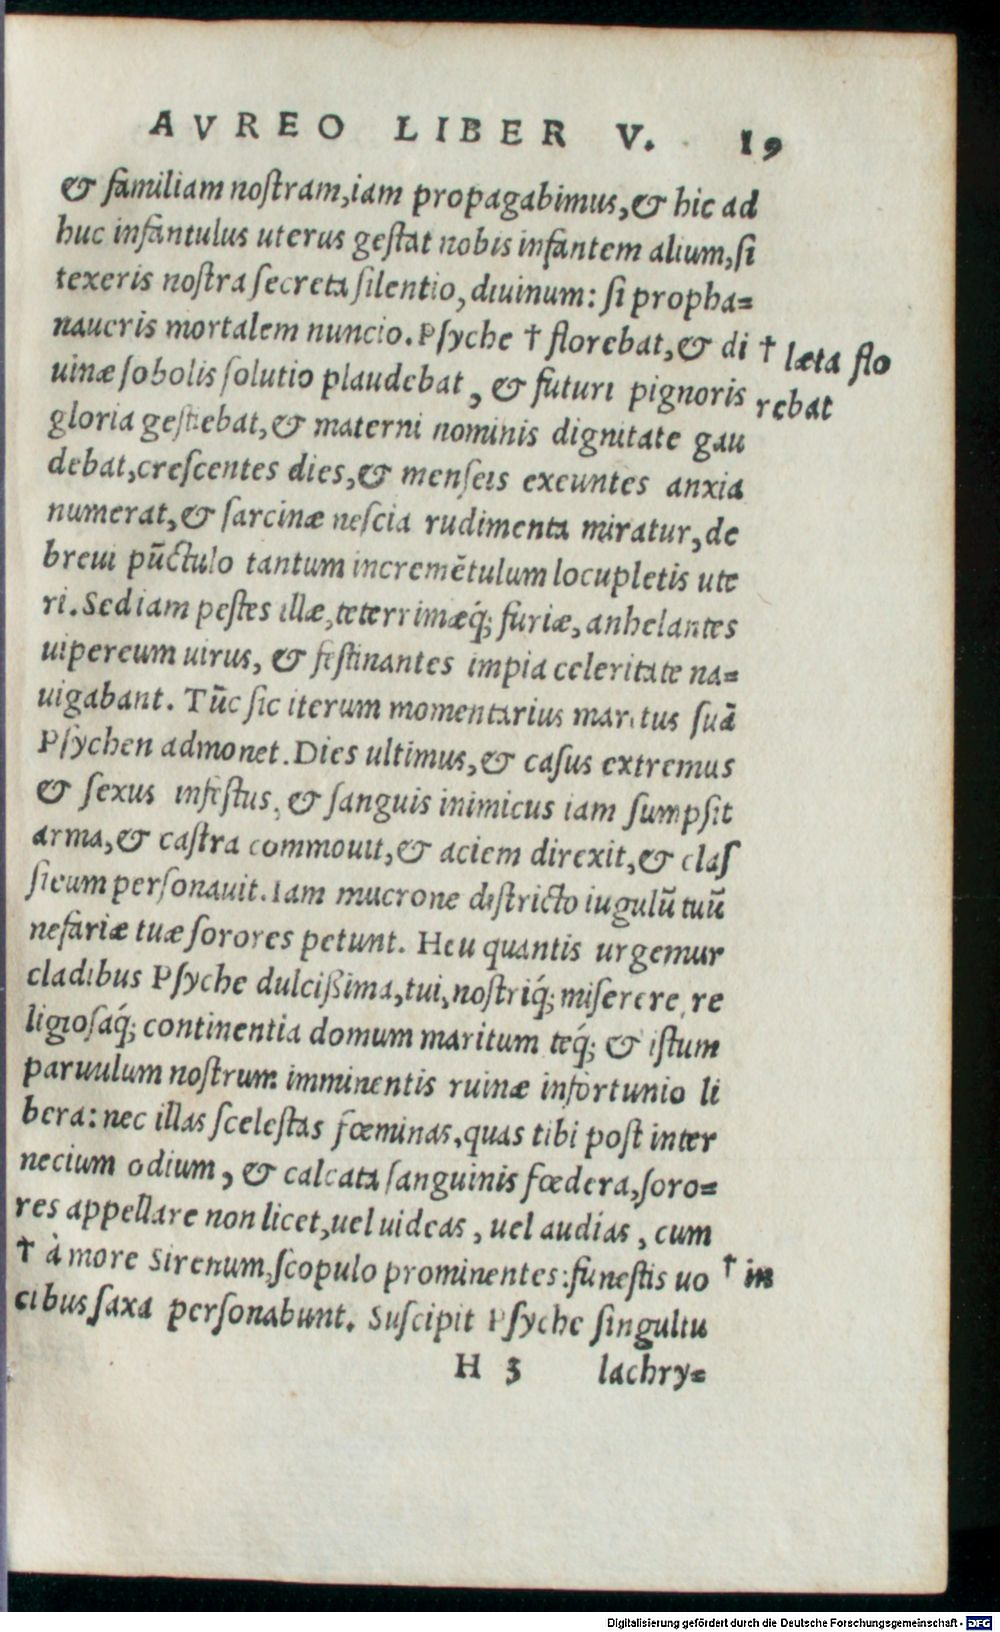 AVREO LIBER V. 19
& familiam noſtram, iam propagabimus, & hic ad
huc infantulus uterus geſtat nobis infantem alium, ſi
texeris noſtra ſecreta ſilentio, diuinum: ſi propha=
naueris mortalem nuncio. Pſyche † florebat, & di
† læta flo
uinæ ſobolis ſolutio plaudebat, & futuri pignoris
rebat
gloria geſtiebat, & materni nominis dignitate gau
debat, creſcentes dies, & menſeis exeuntes anxia
numerat, & ſarcinæ neſcia rudimenta miratur, de
breui pūctulo tantum incremētulum locupletis ute
ri. Sed iam peſtes illæ, teterrimæq́; furiæ, anhelantes
uipereum uirus, & feſtinantes impia celeritate na=
uigabant. Tūc ſic iterum momentarius maritus ſuā
Pſychen admonet. Dies ultimus, & caſus extremus
& ſexus infeſtus, & ſanguis inimicus iam ſumpſit
arma, & caſtra commouit, & aciem direxit, & claſ
ſicum perſonauit. Iam mucrone diſtricto iugulū tuū
nefariæ tuæ ſorores petunt. Heu quantis urgemur
cladibus Pſyche dulcißima, tui, noſtriq́; miſerere, re
ligioſaq́; continentia domum maritum teq́; & iſtum
paruulum noſtrum imminentis ruinæ infortunio li
bera: nec illas ſceleſtas fœminas, quas tibi poſt inter
necium odium, & calcata ſanguinis fœdera, ſoro=
res appellare non licet, uel uideas, uel audias, cum
† à more Sirenum, ſcopulo prominentes: funeſtis uo
† in
cibus ſaxa perſonabunt. Suſcipit Pſyche ſingultu
H 3 lachry=
Digitalisierung gefördert durch die Deutsche Forschungsgemeinschaft - DFG